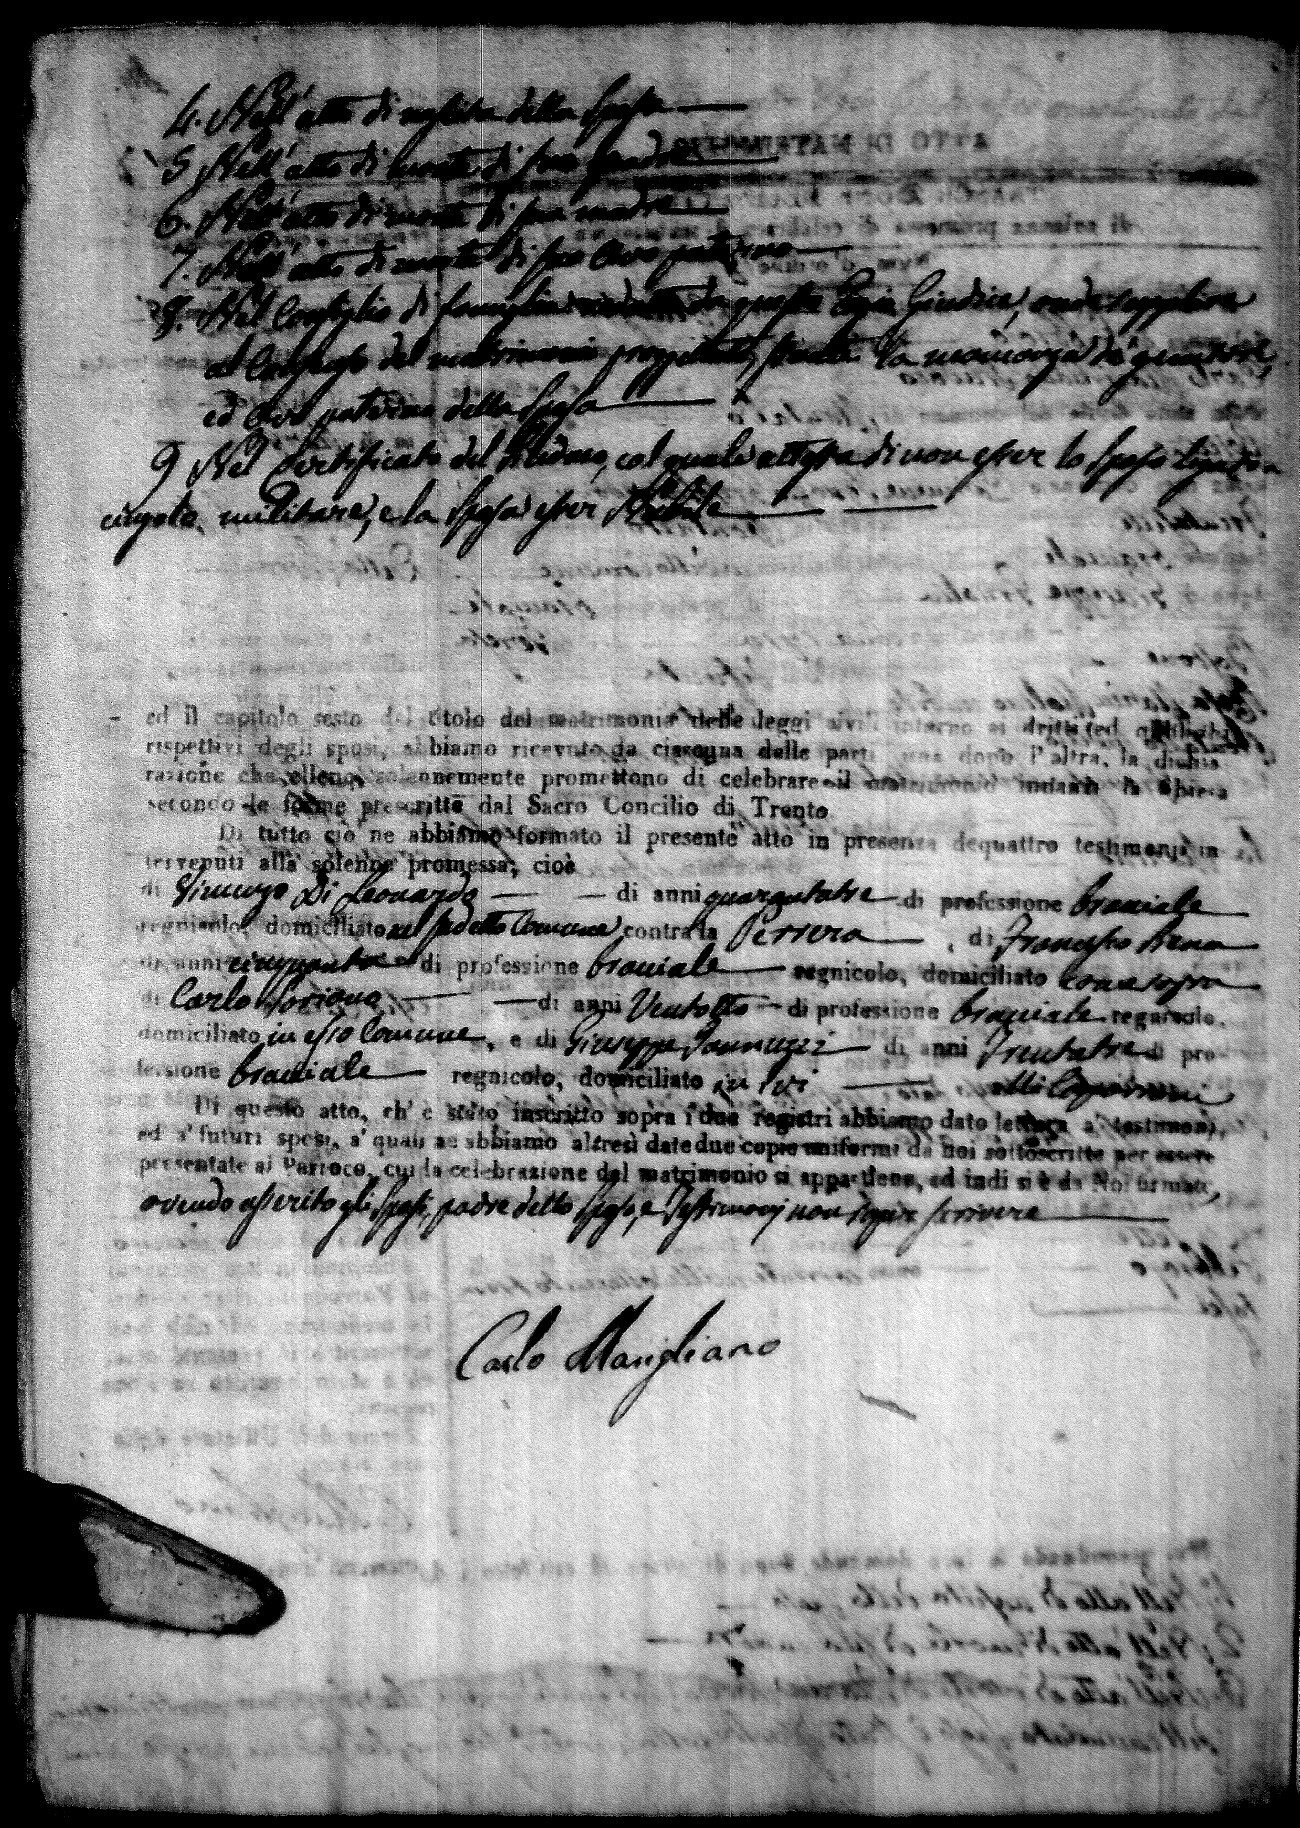 4. Nell'atto di nascita della Sposa
5. Nell'atto di morte di suo padre
6. Nell'atto di morte di sua madre
7. Nell'atto di morte di suo Avo paterno
8. Nel Consiglio di famiglia da questo Regio Giudice, onde supplire
al Consenso del matrimonio progettato, stante la mancanza de' genitori,
ed Avo paterno della Sposa
9 Nel Certificato del Sindaco, col quale attesta di non esser lo Sposo
militare, e la Sposa esser Nubile
ed il capitolo sesto del titolo del matrimonio delle leggi civili intorno ai dritti ed obblighi
rispettivi degli sposi, abbiamo ricevuto da ciascuna delle parti una dopo l'altra, la dichia
razione che elleno solennemente promettono di celebrare il matrimonio innanzi la Chiesa
secondo le forme prescritte dal Sacro Concilio di Trento
Di tutto ciò ne abbiamo formato il presente atto in presenza dequattro testimonj in
tervenuti alla solenne promessa, cioè
di Vincenzo Di Leonardo di anni quarantatre di professione bracciale
regnicolo, domiciliato nel sudetto Comune contrada Perrera, di Francesco
di anni cinquanta di professione bracciale regnicolo, domiciliato come sopra
di Carlo Soriano di anni Ventotto di professione bracciale regnicolo.
domiciliato in esso Comune, e di Giuseppe Iannuzzi di anni Trentatre di pro
fessione bracciale regnicolo, domiciliato in ivi
Di questo atto, ch' è stato inscritto sopra i due registri abbiamo dato lettura a' testimonj,
ed a' futuri sposi, a' quali ne abbiamo altresì date due copie uniformi da noi sottoscritte per essere
presentate al Parroco, cui la celebrazione del matrimonio si appartiene, ed indi si è da Noi firmato,
avendo asserito gli Sposi, padre dello Sposo, e Testimonj non sapere scrivere
Carlo Marigliano